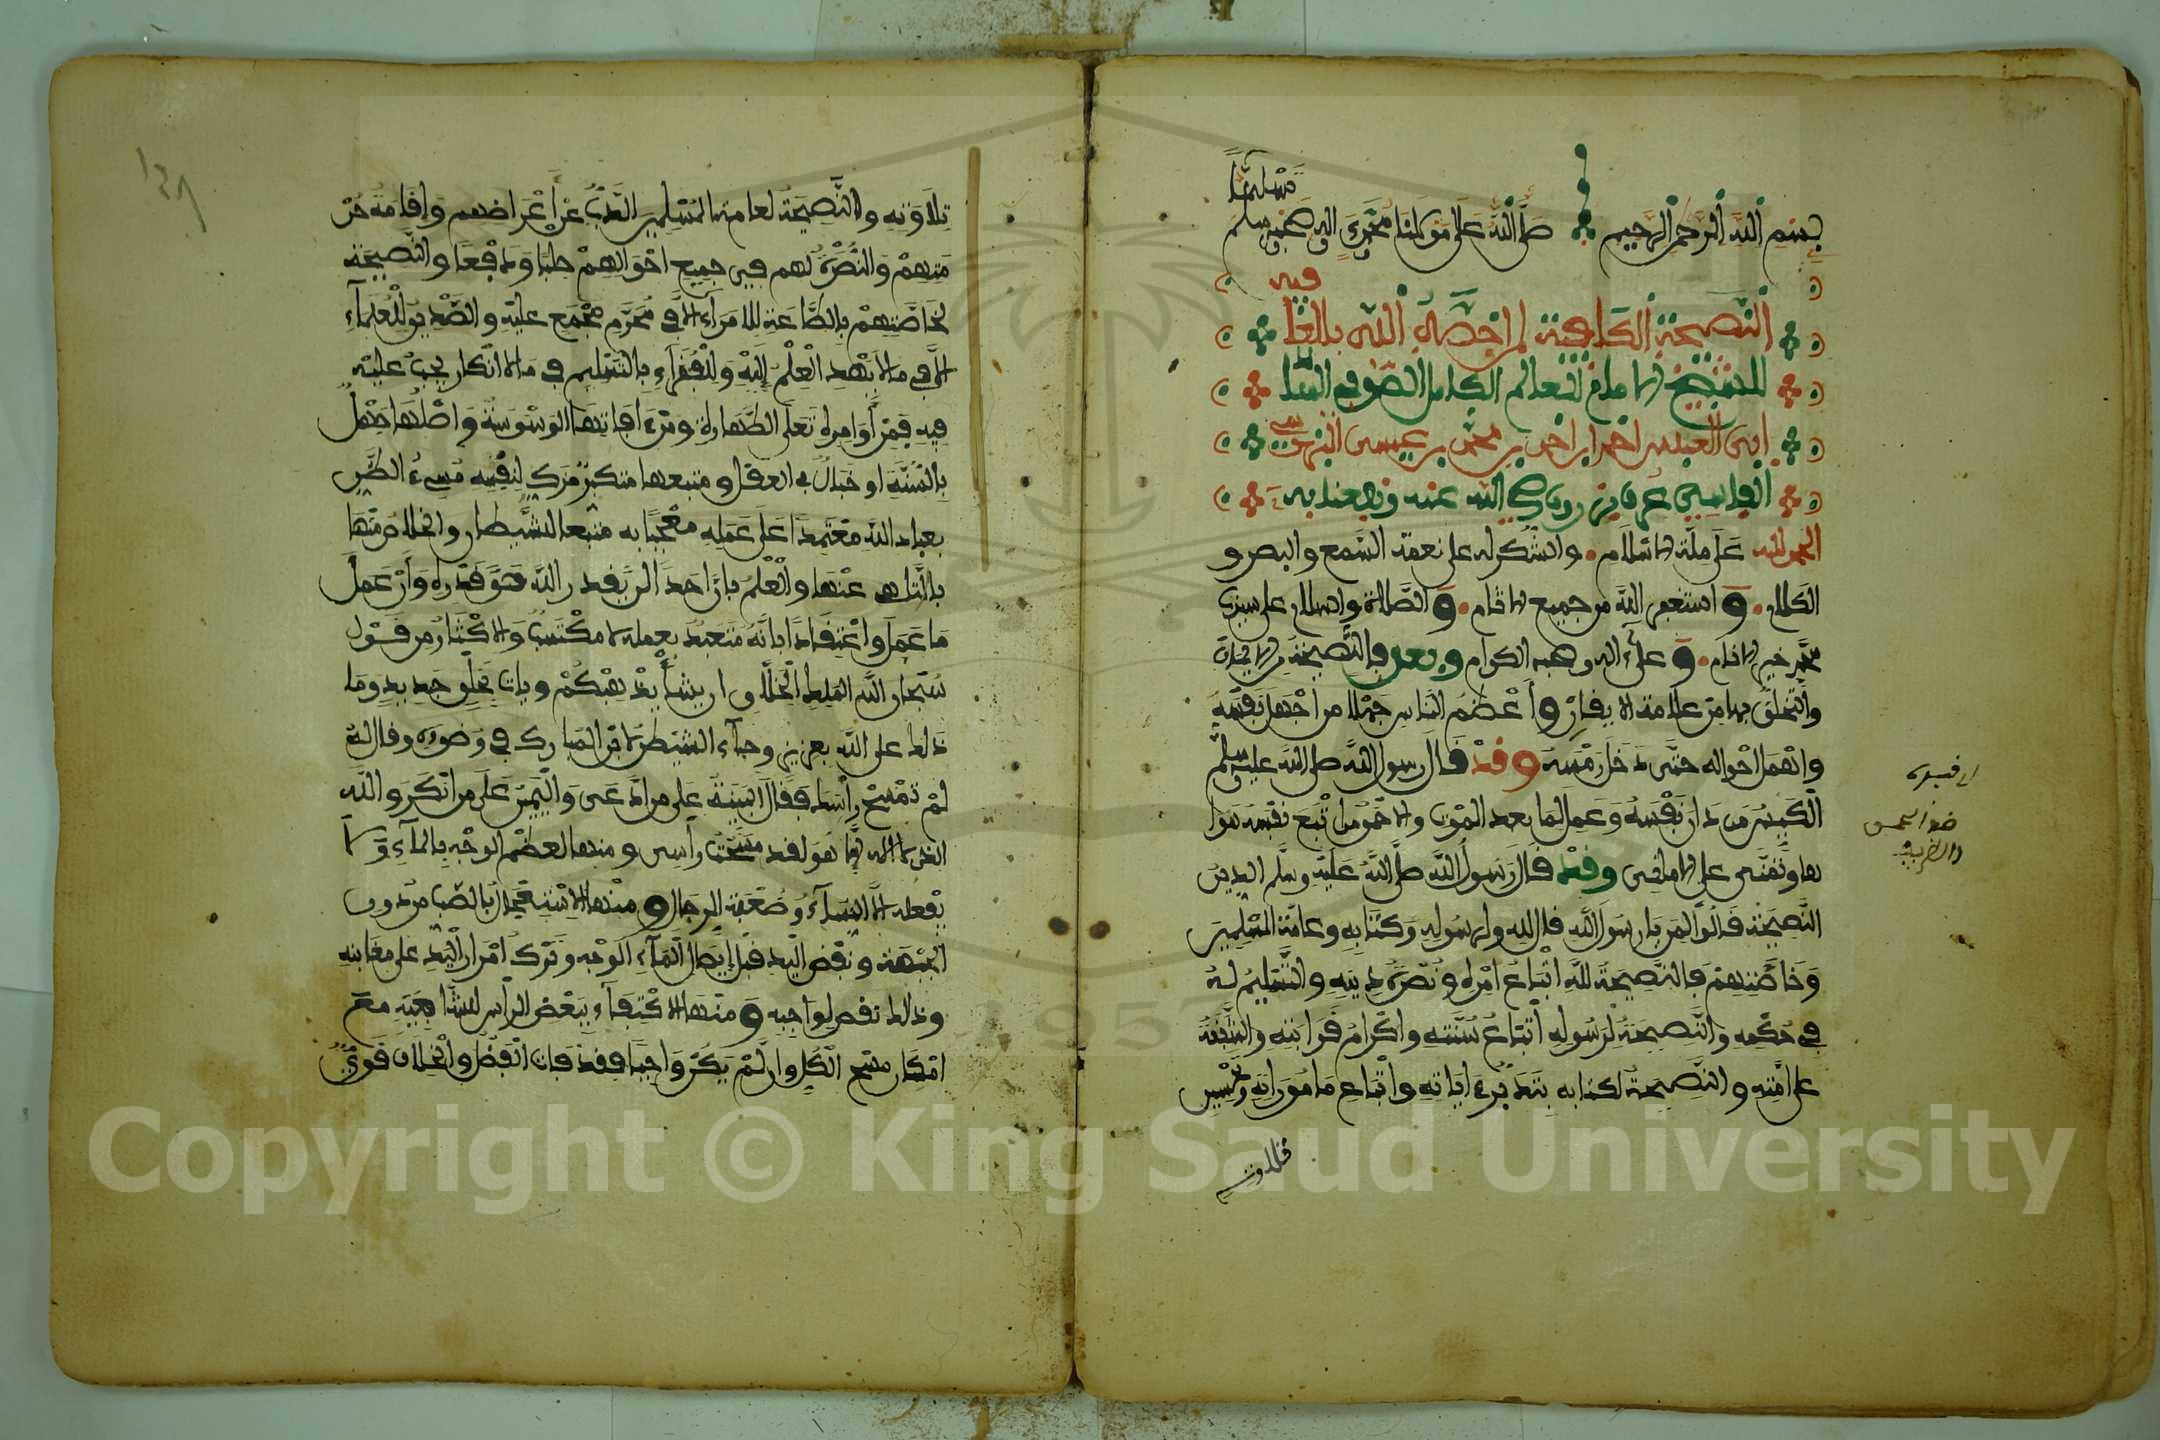 بسم الله الرحمن الرحيم صلى الله على مولانا محمد واله وصحبه وسلم
تسليما
فيه
النصيحة الكافية لمن خصه الله بالعا
للشيخ الامام العالم الكامل الصوفي
ابي العباس احمد ابن احمد بن محمد بن عيسى البرنسي
الفاسي عرف بزروق رضي الله عنه ونفعنا به
الحمد لله على ملة الاسلام والشكر له على نعمة السمع والبصر و
الكلام و استغفر الله من جميع الاثام و الصلاة والسلام على سيدنا
محمد خير الانام و على اله وصحبه الكرام وبعد فالنصيحة من الايمان
والتخلق بها من علامة الايقان وأعظم الناس جهلا من اجهل نفسه
واهمل احواله حتى دخل رمسه وقد قال رسول الله صلى الله عليه وسلم
الكيس من دان نفسه وعمل لما بعد الموت والاحمق من اتبع نفسه هوا
ها وتمنى على الاماني وقد قال رسول الله صلى الله عليه وسلم الدين
النصيحة قالوا لمن يا رسول الله قال لله ولرسوله وكتابه وعامة المسلمين
وخاصتهم فالنصيحة لله اتباع امره ونصرة دينه والتسليم له
في حكمه والنصيحة لرسوله اتباع سنته واكرام قرابته والشفقة
على امته والنصيحة لكتابه بتدبر اياته واتباع ماموراته وتحسين
تلاوته
تلاوته والنصيحة لعامة المسلمين الذب عن اعراضهم واقامة حر
متهم والنصرة لهم في جميع احوالهم جلبا ودفعا والنصيحة
لخاصتهم بالطاعة للامراء الا في محرم مجمع عليه والتصديق للعلماء
الا في ما لا يهد العلم اليه وللفقراء بالتسليم في ما لا انكار يجب عليه
فيه فمن أوامره تعلى الطهارة ومن ءافاتها الوسوسة واصلها جهل
بالسنة او خبال في العقل ومتبعها متكبر مزك لنفسه مسيء الظن
بعباد الله معتمدا على عمله معجبا به متبعا للشيطان والخلاص منها
بالتلهي عنها والعلم بان احدا لن يقدر الله حق قدره وان عمل
ما عمل واعتقادا بانه متعبد بعمله لا مكتسب والاكثار من قول
سبحان الله الملك الخلاق ان يشأ يذهبكم ويات بخلق جديد وما
ذلك على الله بعزيز وجاء الشيطن لابن المبارك في وضوءه وقال له
لم تمسح راسك فقال البينة على من ادعى واليمين على من انكر والله
الذي لا اله الا هو لقد مسحت راسي ومنها لعظم الوجه بالماء ولا
يفعله الا النساء وضعفة الرجال ومنها الاستعجال بالصب من دون
الجبهة ونفض اليد قبل ايصال الماء الوجه وترك امرار اليد على مغابنه
وذلك نقص لواجبه و منها الاكتفاء ببعض الرأس للشافعية مع
امكان مسح الكل وان لم يكن واجبا فقد فات الفضل والخلاف قوي